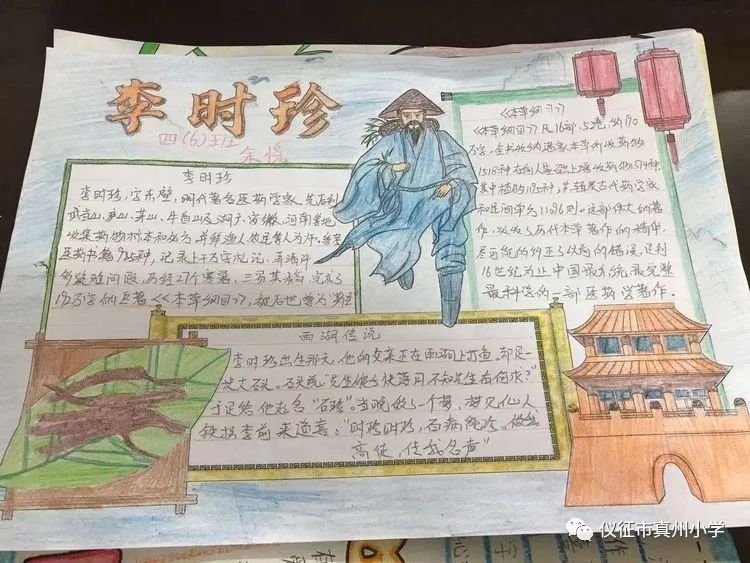 李时珍
四(6)班
余悦
李时珍
李时珍，字东璧，明代著名医药学家。先后到
武当山、庐山、茅山、牛首山及湖广、安徽、河南等地
收集药物标本和处方，并拜渔人、农民等人为师，参考
医药书籍925种，记录上千万字札记，弄清许
多疑难问题，历经27个寒暑，三易其稿，完成了
192万字的巨著《本草纲目》，被后世尊为
《本草纲目》
《本草纲目》凡16部、52卷，约190
万字。全书收纳诸家本草所收药物
1518种，在前人基础上增收药物374种，
其中植物1195种，共辑录古代药学家
和民间单方11096则。这部伟大的著
作，吸收了历代本草著作的精华，
尽可能的纠正了以前的错误，是到
16世纪为止中国最系统最完整
最科学的一部医药学著作。
雨湖传说
李时珍出生那天，他的父亲正在雨湖上打鱼，却是一
块大石头。石头说："先生娘子快落月不知先生有何求？"
于是给他起名"石珍"。当晚做了一个梦，梦见仙人
铁拐李前来道喜："时珍时珍，百病能诊。做我
高徒，传我名声"
仪征市真州小学